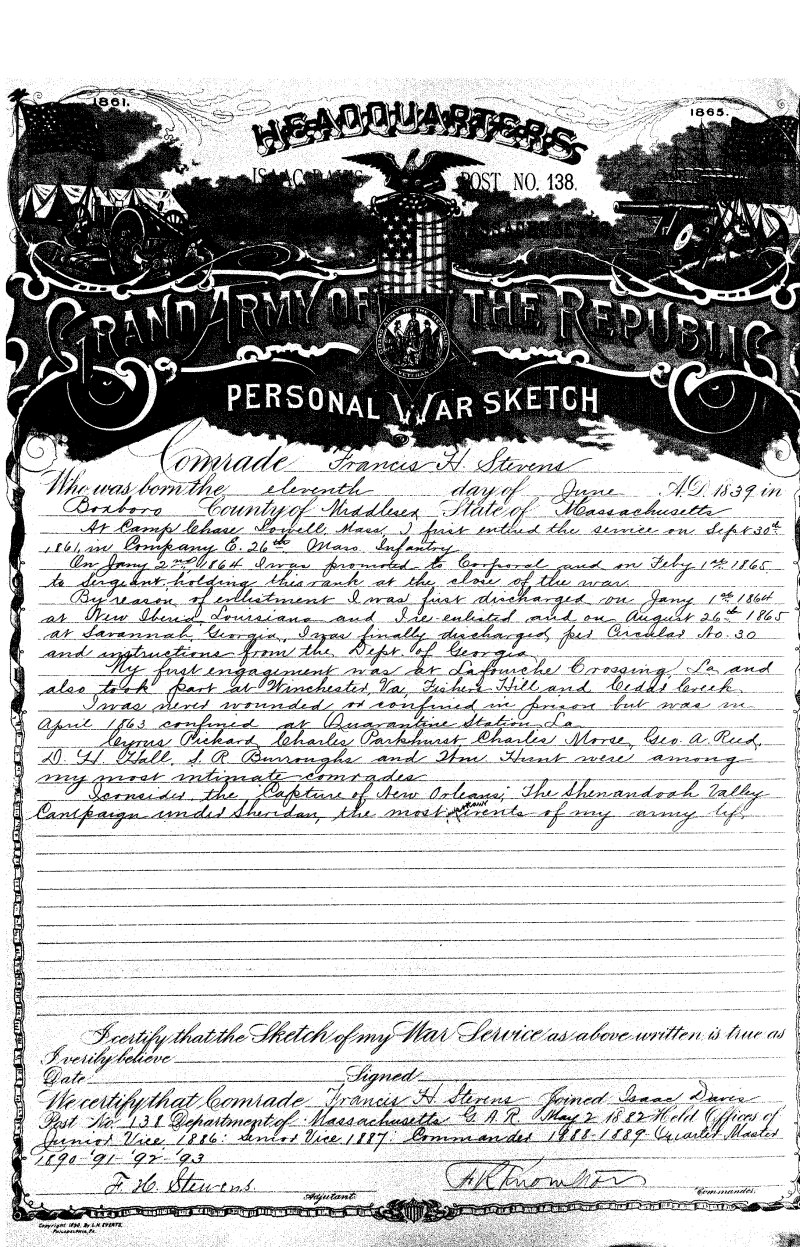 1861.
1865.
HEADQUARTERS
ISAAC DAVIS POST NO. 138.
MASSACHUSETTS
GRAND ARMY OF THE REPUBLIC
VETERAN
PERSONAL WAR SKETCH
Comrade Francis H. Stevens
Who was born the eleventh day of June A.D. 1839 in
Boxboro County of Middlesex State of Massachusetts
At Camp Chase Lowell, Mass, I first entered the service on Sept 30th
1861, in Company E. 26th Mass. Infantry
On Jany 2nd 1864 I was promoted to Corporal and on Feby 1st 1865
to Sergeant, holding this rank at the close of the war.
By reason of enlistment I was first discharged on Jany 1st 1864
at New Iberia, Louisiana and I re-enlisted and on August 26th 1865
at Savannah Georgia, I was finally discharged, per Circular No. 30
and instructions from the Dept. of Georgia
My first engagement was at Lafourche Crossing, La and
also took part at Winchester, Va, Fishers Hill and Cedar Creek
I was never wounded or confined in prison but was in
April 1863 confined at Quarantine Station La
Cyrus Pickard, Charles Parkhurst Charles Morse, Geo. A. Reed,
D. H. Hall, S R Burroughs and Wm Hunt were among
my most intimate comrades
I consider the "Capture of New Orleans; The Shenandoah Valley
Campaign under Sheridan, the most events of my army life.
I certify that the Sketch of my War Service as above written, is true as
I verily believe
Date Signed
We certify that Comrade Francis H. Stevens Joined Isaac Davis
Post No 138 Department of Massachusetts G.A.R. May 2 1882 Held Offices of
Junior Vice 1886: Senior Vice 1887: Commander 1888-1889- Quarter Master
1890-'91-'92-'93
F. H. Stevens. F K Knowlton
Adjutant. Commander.
Copyright 1890. By L.H. EVERTS.
PHILADELPHIA, PA.